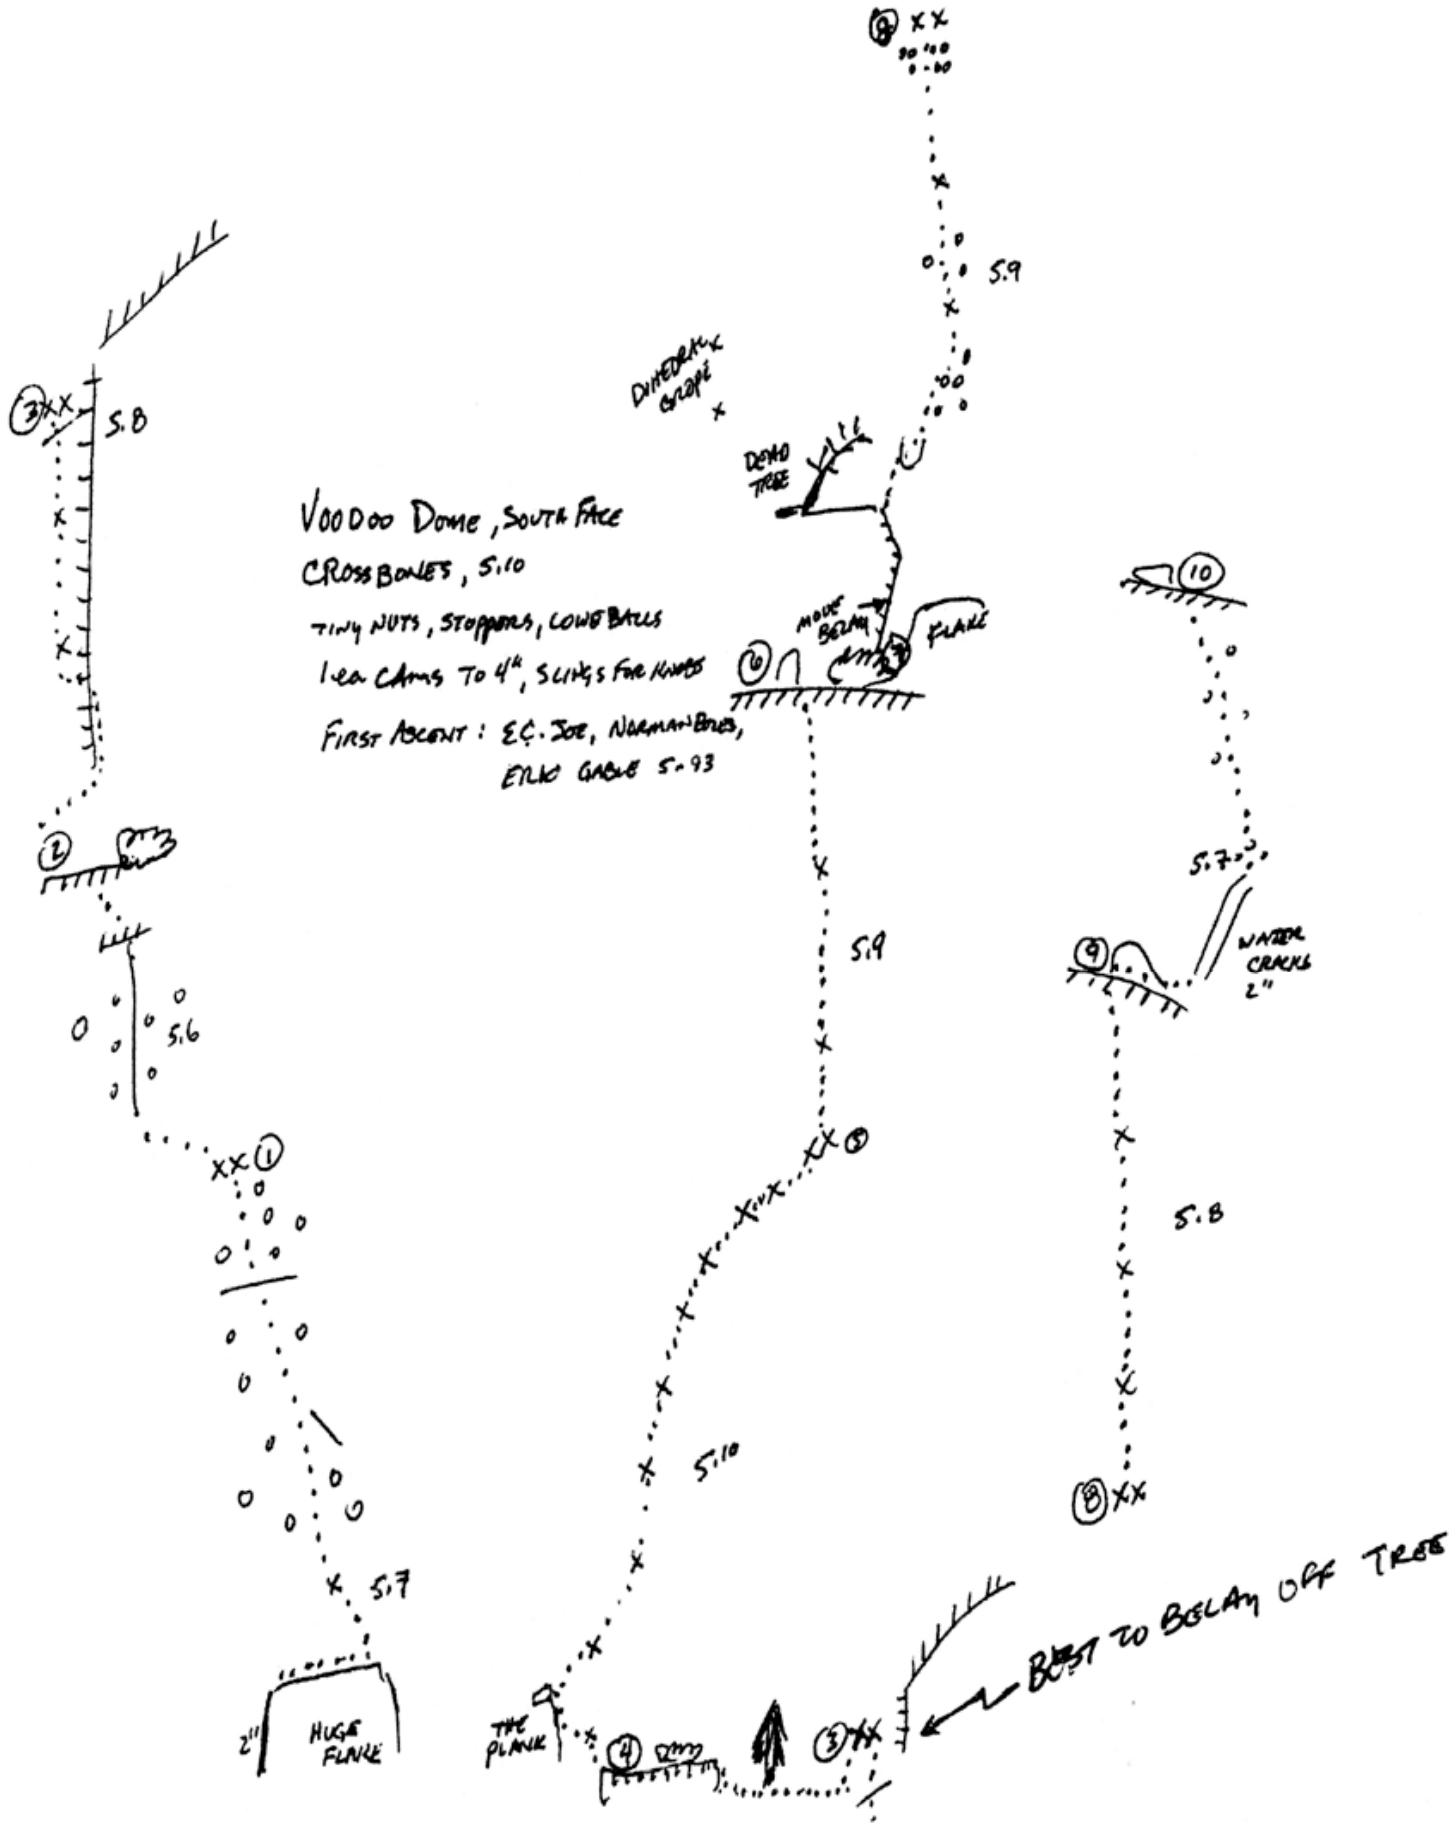 8 XX
5.9
DIHEDRAL
GROPE
DEAD
TREE
3 XX
5.8
VOODOO DOME, SOUTH FACE
CROSSBONES, 5.10
TINY NUTS, STOPPERS, LOWEBALLS
1 ea CAMS TO 4", SLINGS FOR KNOBS
FIRST ASCENT: E.C. JOE, NORMAN BOLES,
ERIC GABLE 5-93
MOVE
BELAY
FLAKE
6
7
10
2
5.9
5.7
9
WATER
CRACKS
2"
5.6
XX 1
XX 5
5.8
5.10
8 XX
5.7
BEST TO BELAY OFF TREE
2"
HUGE
FLAKE
THE
PLANK
4
3 XX